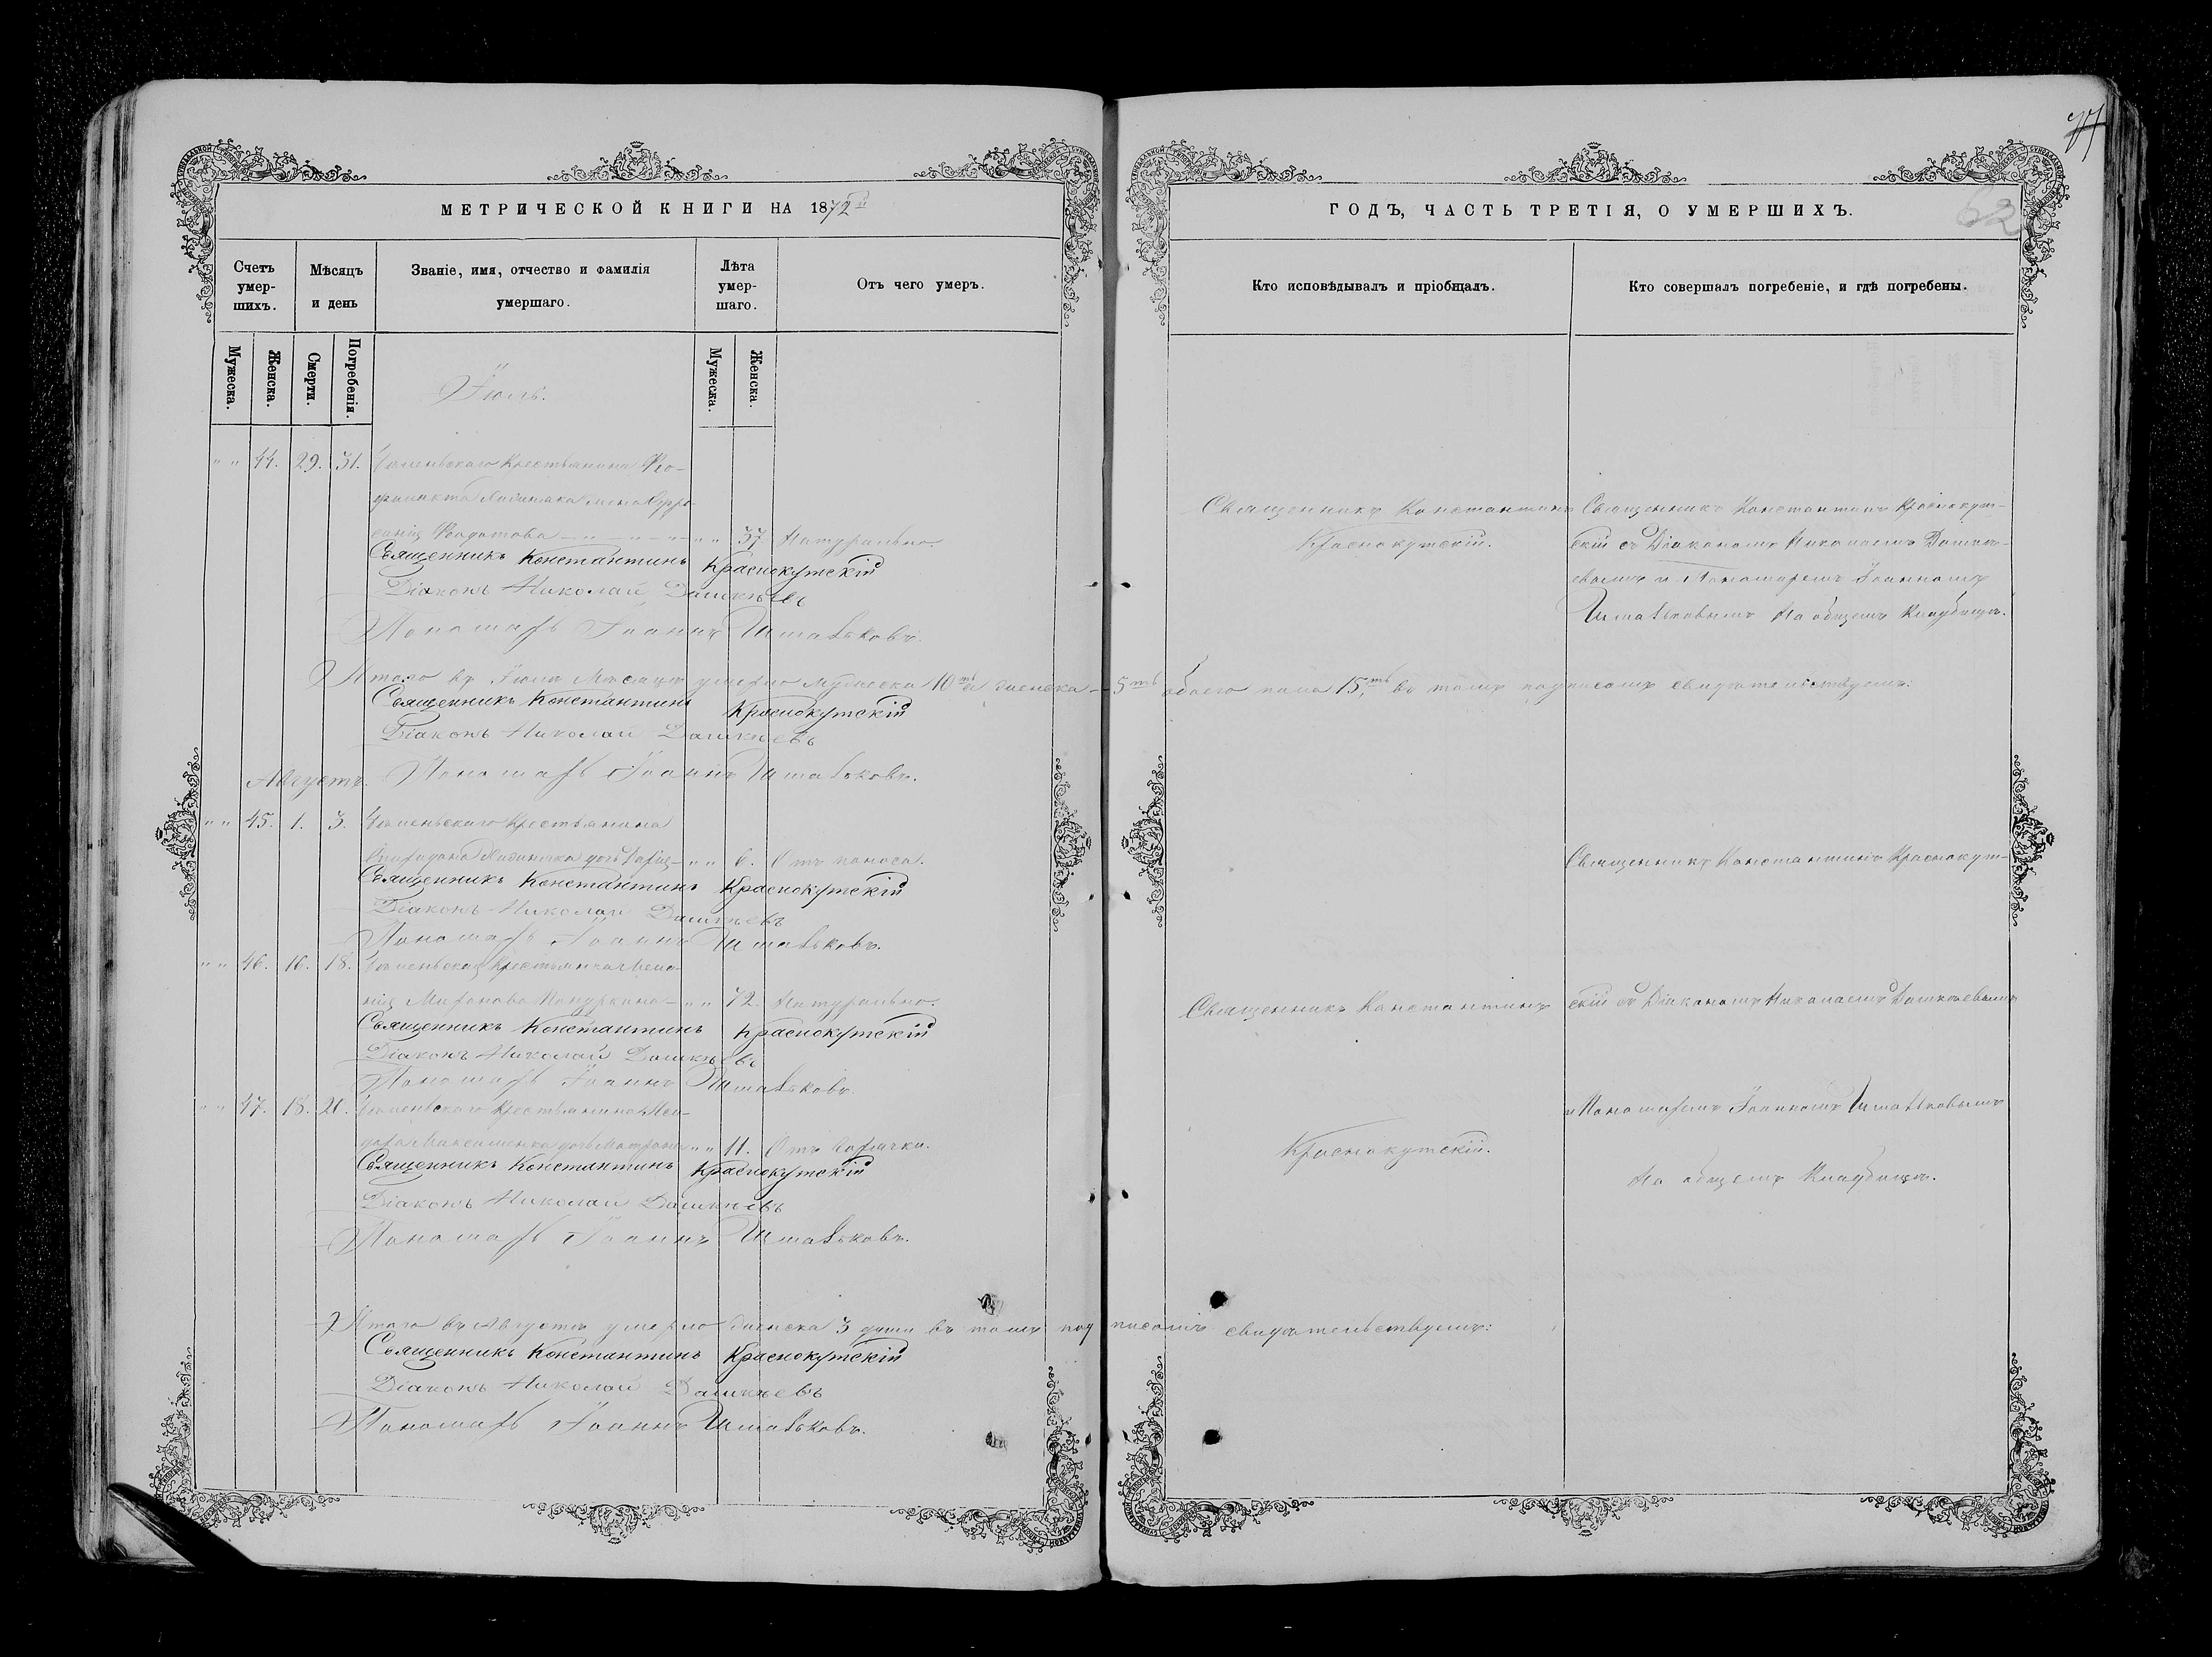 МЕТРИЧЕСКОЙ КНИГИ НА 1872й
Счетъ умер-шихъ.
Мѣсяцъ и день
Званіе, имя, отчество и фамилія умершаго.
Лѣта умер-шаго.
Отъ чего умеръ.
Мужеска.
Женска.
Смерти.
Погребенія.
Мужеска.
Женска.
Іюль.
" " 44. 29. 31. Крестьянина Фео-
филакта жена Евфро-
синія Федотова " " 37 Натурально.
Священникъ Константинъ Краснокутскій
Діаконъ Николай Дашкѣевъ
Пономарь Іоаннъ
Итого въ Іюлѣ Мѣсяцѣ умерло мужеска 10ть и женска 5ть обоего пола 15ть въ томъ подписомъ свидѣтельствуемъ:
Священникъ Константинъ Краснокутскій
Діаконъ Николай Дашкѣевъ
Пономарь Іоаннъ
Августъ.
" " 45. 1. 3. Крестьянина
Спиридона дочь " " 6. Отъ поноса.
Священникъ Константинъ Краснокутскій
Діаконъ Николай Дашкѣевъ
Пономарь Іоаннъ
" " 46. 16. 18. Крестьянка Мела-
нія Миронова " " 72. Натурально.
Священникъ Константинъ Краснокутскій
Діаконъ Николай Дашкѣевъ
Пономарь Іоаннъ
" " 47. 18. 20. Крестьянина Иси-
дора Максименка дочь Матрона " " 11. Отъ горячки.
Священникъ Константинъ Краснокутскій
Діаконъ Николай Дашкѣевъ
Пономарь Іоаннъ
Итого въ Августѣ умерло женска 3 души въ томъ подписомъ свидѣтельствуемъ:
Священникъ Константинъ Краснокутскій
Діаконъ Николай Дашкѣевъ
Пономарь Іоаннъ
ГОДЪ, ЧАСТЬ ТРЕТІЯ, О УМЕРШИХЪ.
62
Кто исповѣдывалъ и пріобщалъ.
Кто совершалъ погребеніе, и гдѣ погребены.
Священникъ Константинъ
Краснокутскій.
Священникъ Константинъ Краснокут-
скій съ Діакономъ Николаемъ Дашкѣ-
евымъ и Пономаремъ Іоанномъ
На общемъ Кладбищѣ.
Священникъ Константинъ Краснокут-
Священникъ Константинъ
скій съ Діакономъ Николаемъ Дашкѣевымъ
и Пономаремъ Іоанномъ
Краснокутскій.
На общемъ Кладбищѣ.